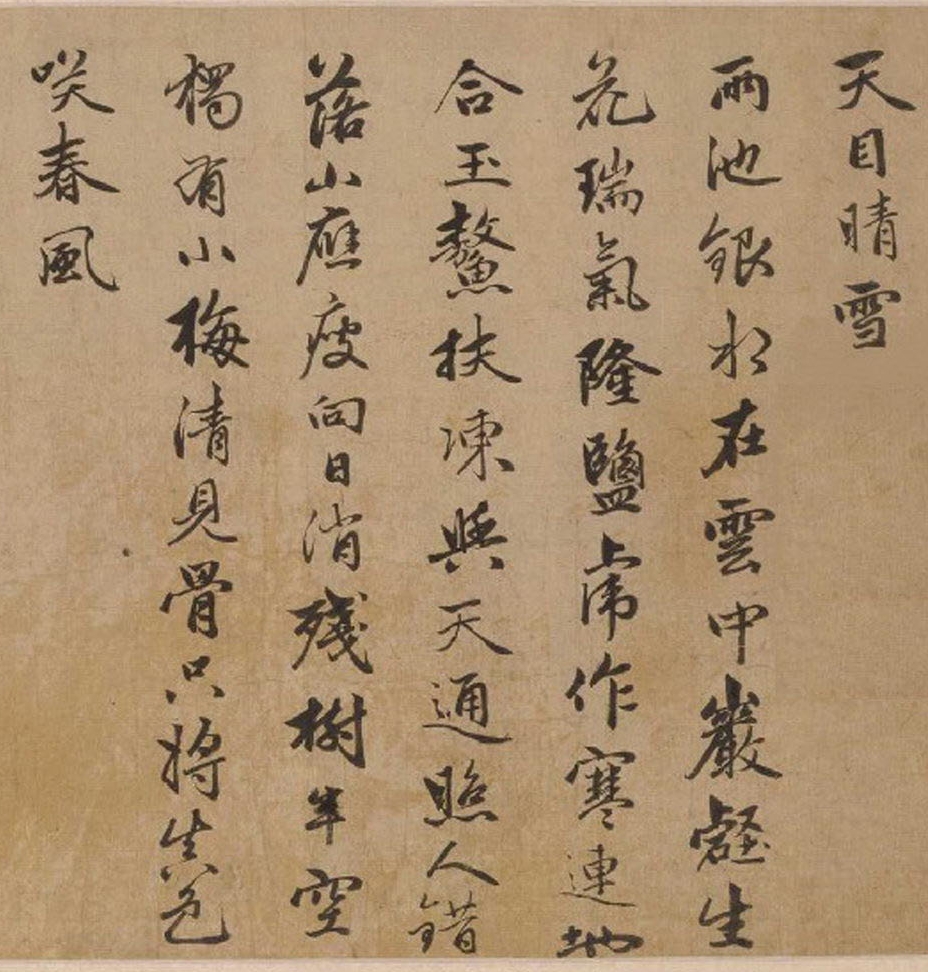 天目晴雪
兩池銀水在雲中巖壑生
花瑞氣隆鹽虎作寒連地
合玉鰲扶凍與天通照人錯
落山應瘦向日消殘樹半空
獨有小梅清見骨只將真色
咲春風